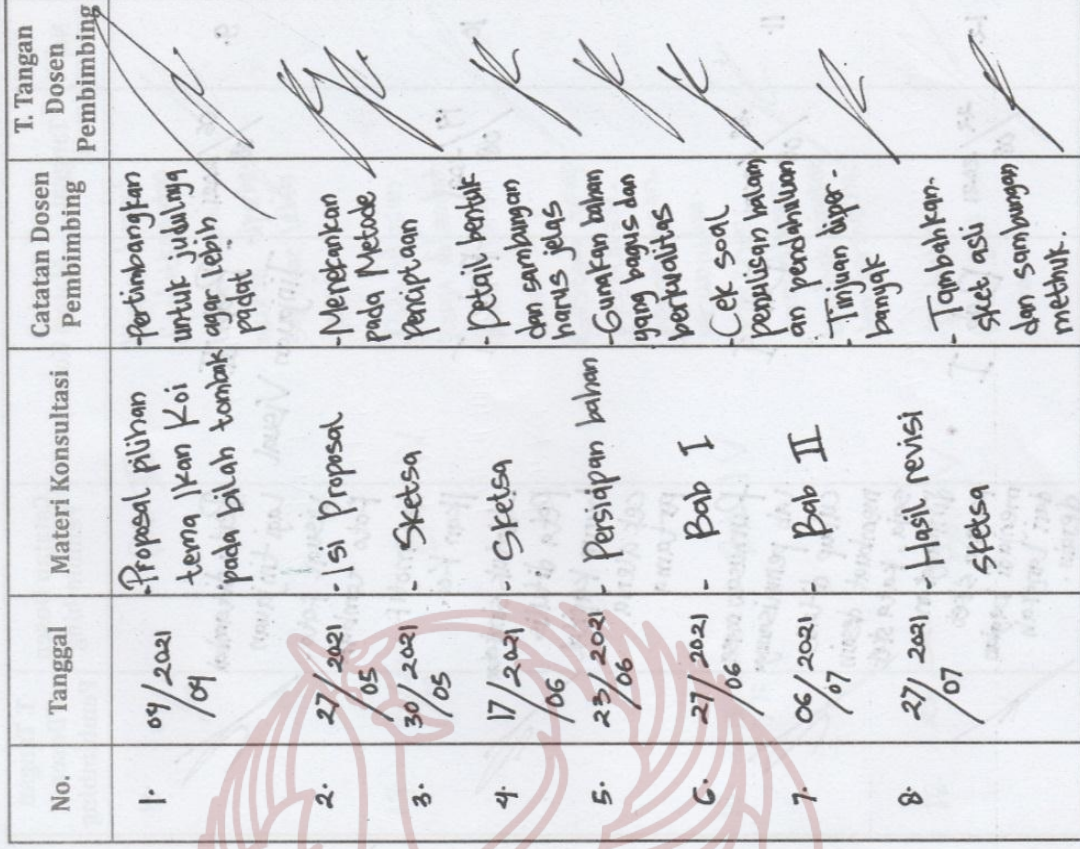 No.
Tanggal
Materi Konsultasi
Catatan Dosen
Pembimbing
T. Tangan
Dosen
Pembimbing
1.
09/2021
/09
-Proposal pilihan
tema Ikan Koi
pada bilah tombak
-Pertimbangkan
untuk judulnya
agar lebih
padat
2.
27/2021
/05
- Isi Proposal
-Menekankan
pada Metode
penciptaan
3.
30/2021
/05
- Sketsa
4.
17/2021
/06
- Sketsa
- Detail bentuk
dan sambungan
harus jelas
5.
23/2021
/06
- Persiapan bahan
-Gunakan bahan
yang bagus dan
berkualitas
6.
27/2021
/06
- Bab I
- Cek soal
penulisan halam
an pendahuluan
7.
06/2021
/07
- Bab II
- Tinjuan diper-
banyak
8.
27/2021
/07
- Hasil revisi
sketsa
- Tambahkan
sket asli
dan sambungan
methuk.